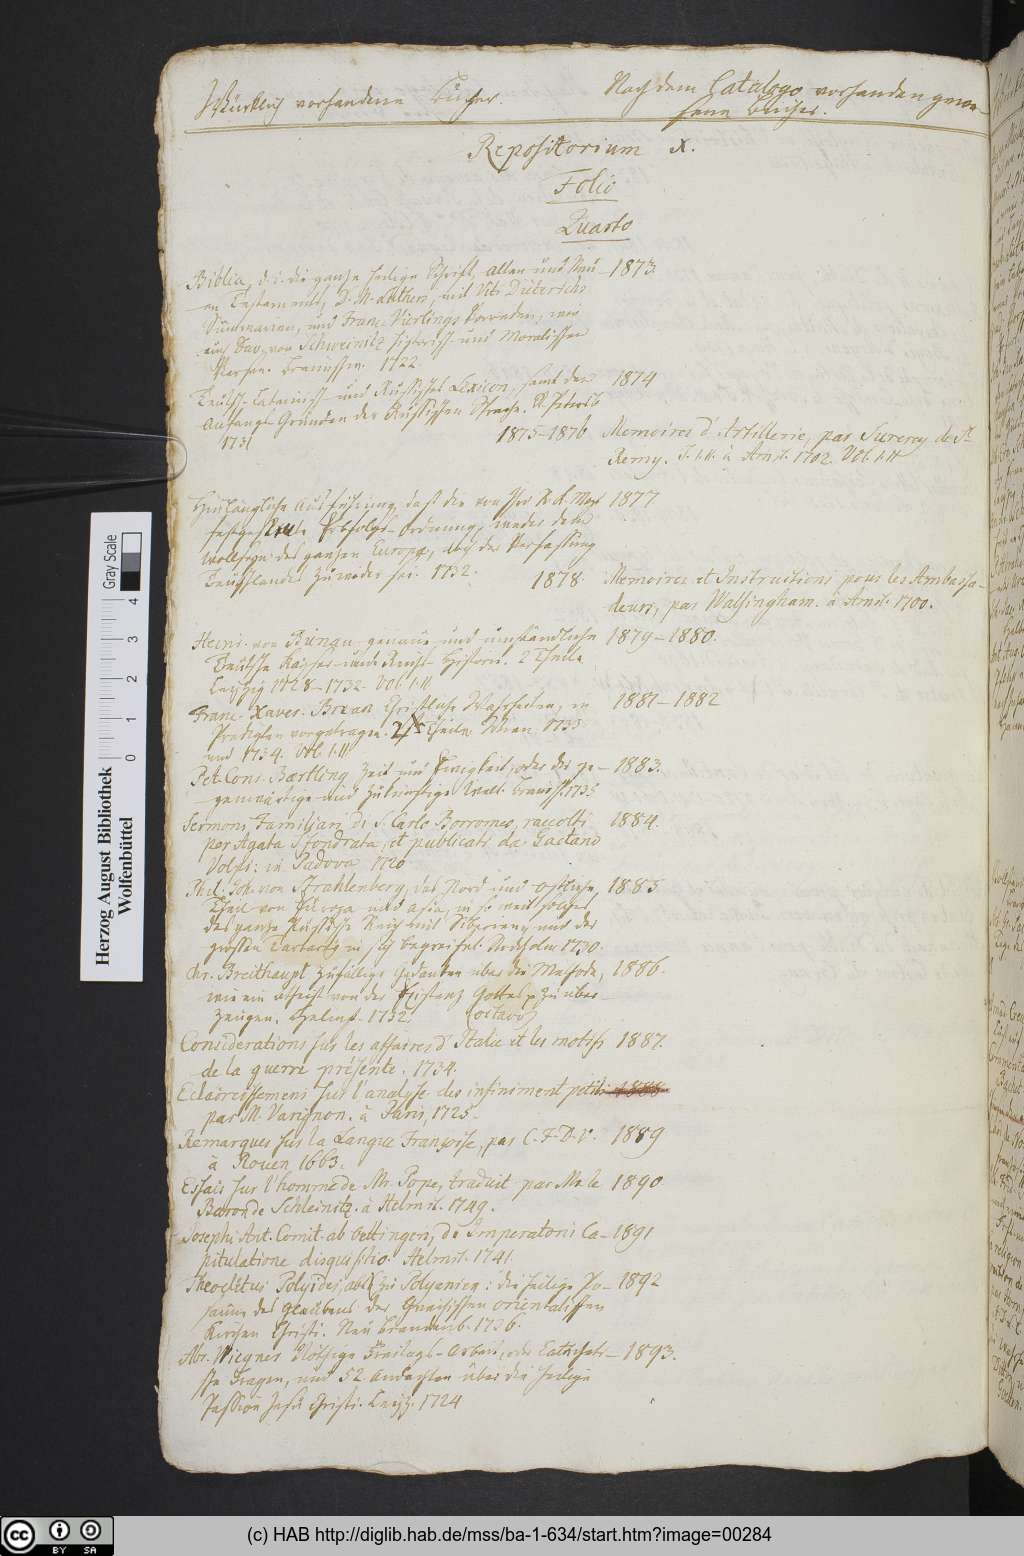 Würklich vorhandene Bücher.
Nach dem Catalogo vorhanden gewe-
sene Bücher.
Repositorium X.
Folio
Quarto
Biblia, d. i. die ganze heilige Schrift, alten und Neu- 1873.
en Testaments, D. M. Luthers, mit Viti Dieterichs
Summarien, und Franc. Vierlings Vorreden, wie
auch Dav. von Schweinitz historisch- und Moralischen
Versen. 1722.
Teutsch-Lateinisch- und Russisches Lexicon, samt den 1874
Anfangs-Gründen der Russischen Sprache. St. Petersb.
1731
1875-1876 Memoires d'Artillerie, par Surirey de St.
Remy. T. I. II. à Amst. 1702. Vol. I. II
Hinlängliche Ausführung, daß die von 1877
festgestellte Erbfolgs-Ordnung, weder dem
wollseyn des ganzen Europa, noch der Verfassung
Teutschlandes zuwider sei. 1732.
1878. Memoires et Instructions pour les Ambassa-
deurs, par Walsingham. à Amst. 1700.
Heinr. von Bunau genaue und umständliche 1879-1880.
Teutsche Kaiser- und Reichs-Historie. 2 Theile
Leipzig 1728-1732. Vol. I. II
Franc. Xaver. Brean Christliche Wahrheiten, in 1881-1882
Predigten vorgetragen. 2 Theile. Wien, 1733
und 1734. Vol. I. II.
Pet. Conr. Bartling Zeit und Ewigkeit, oder die ge- 1883.
genwärtige und zukünftige Welt. Braunsch. 1735
Sermoni Familiari di S. Carlo Borromeo, raccolti 1884.
per Agata Sfondrata, et publicati da Gaetano
Volpi: in Padova 1720
Phil. Joh. von Strahlenberg, das Nord und ostliche 1885
Theil von Europa und Asia, in so weit solches
das ganze Russische Reich mit Siberien und der
grossen Tartarey in sich begreifet. Stockholm 1730.
Chr. Breithaupt zufällige Gedanken über die Methode, 1886.
wie ein Atheist von der Existenz Gottes zu über-
zeugen. Helmst. 1732. (octavo)
Considerations sur les affaires d'Italie et les motifs 1887.
de la guerre présente. 1734.
Eclaircissemens sur l'analyse des infiniment petits 1888
par M. Varignon. à Paris, 1725.
Remarques sur la Langue Françoise, par C. F. D. V. 1889
à Rouen 1663.
Essais sur l'homme de Mr. Pope, traduit par Mr. le 1890
Baron de Schleinitz. à Helmst. 1749.
Josephi Ant. Comit. ab Oettingen, de Imperatoris Ca- 1891
pitulatione disquisitio. Helmst. 1741.
Theocletus Polyides, abt zu Polyenien: die heilige Po- 1892
saune des Glaubens der Griechischen orientalischen
Kirchen Christi. Neu Brandenb. 1736.
Abr. Wiegners Nöthige Freitags-Arbeit, oder Catecheti- 1893.
sche Fragen, und 52 Andachten über die heilige
Passion Jesu Christi. Leipz. 1724
Herzog August Bibliothek
Wolfenbüttel
Gray Scale
0 1 2 3 4
cc BY SA
(c) HAB http://diglib.hab.de/mss/ba-1-634/start.htm?image=00284